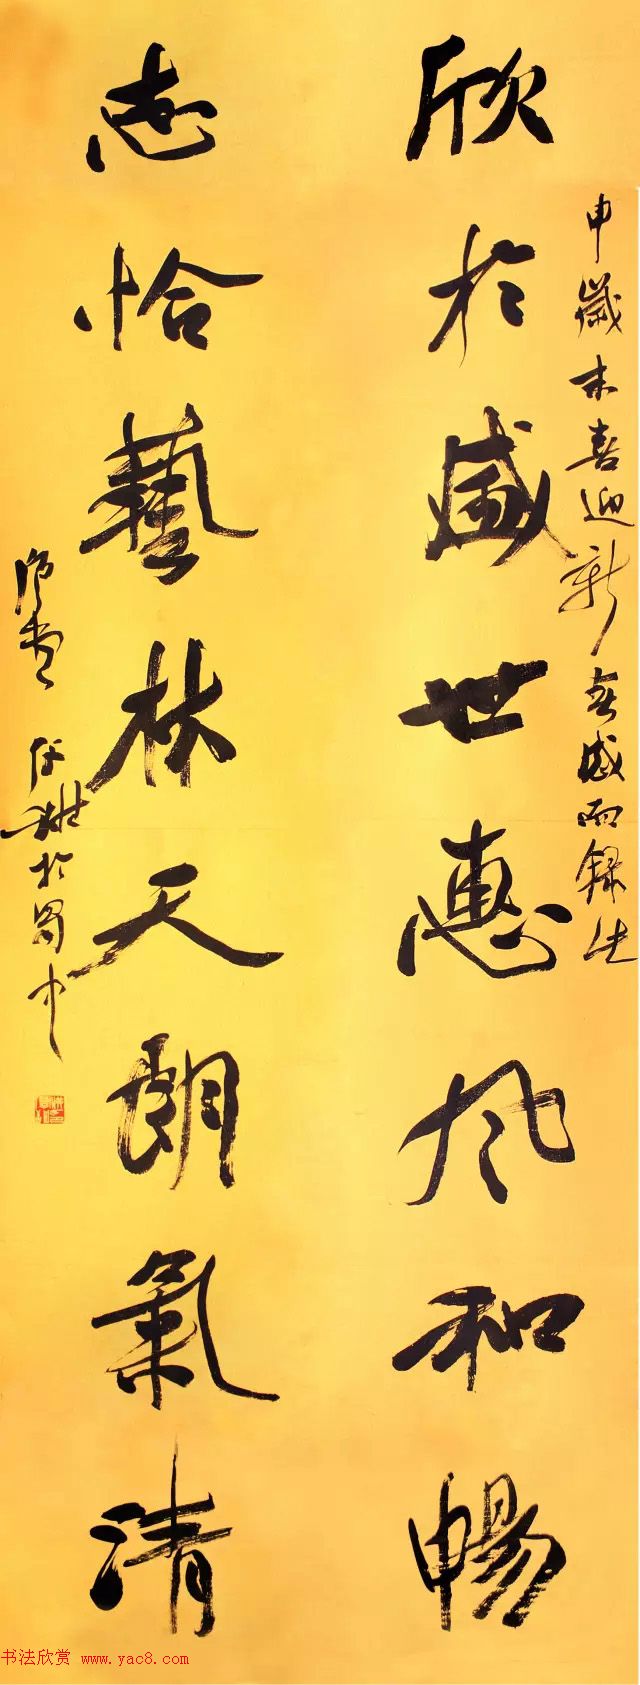 欣於盛世惠風和暢
志恰藝林天朗氣清
申歲末喜迎新春感而錄此
任雄於蜀中
书法欣赏 www.yac8.com